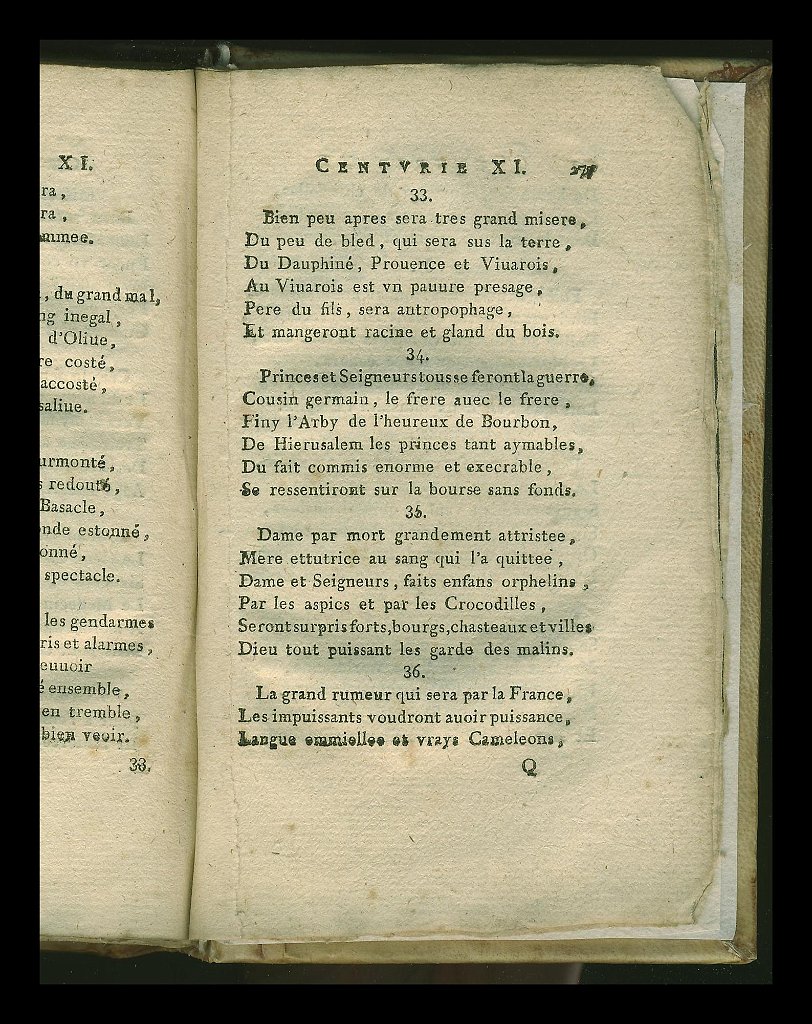 XI.
ra,
ra,
mmee.
, du grand mal,
ng inegal,
d'Oliue,
re costé,
accosté,
saliue.
urmonté,
s redouté,
Basacle,
onde estonné,
onné,
spectacle.
les gendarmes
ris et alarmes,
euuoir
é ensemble,
en tremble,
bien veoir.
33.
CENTVRIE XI.
33.
Bien peu apres sera tres grand misere,
Du peu de bled, qui sera sus la terre,
Du Dauphiné, Prouence et Viuarois,
Au Viuarois est vn pauure presage,
Pere du fils, sera antropophage,
Et mangeront racine et gland du bois.
34.
Princes et Seigneurs tous se feront la guerre,
Cousin germain, le frere auec le frere,
Finy l'Arby de l'heureux de Bourbon,
De Hierusalem les princes tant aymables,
Du fait commis enorme et execrable,
Se ressentiront sur la bourse sans fonds.
35.
Dame par mort grandement attristee,
Mere ettutrice au sang qui l'a quittee,
Dame et Seigneurs, faits enfans orphelins,
Par les aspics et par les Crocodilles,
Seront surpris forts, bourgs, chasteaux et villes
Dieu tout puissant les garde des malins.
36.
La grand rumeur qui sera par la France,
Les impuissants voudront auoir puissance,
Langue emmiellee et vrays Cameleons,
Q